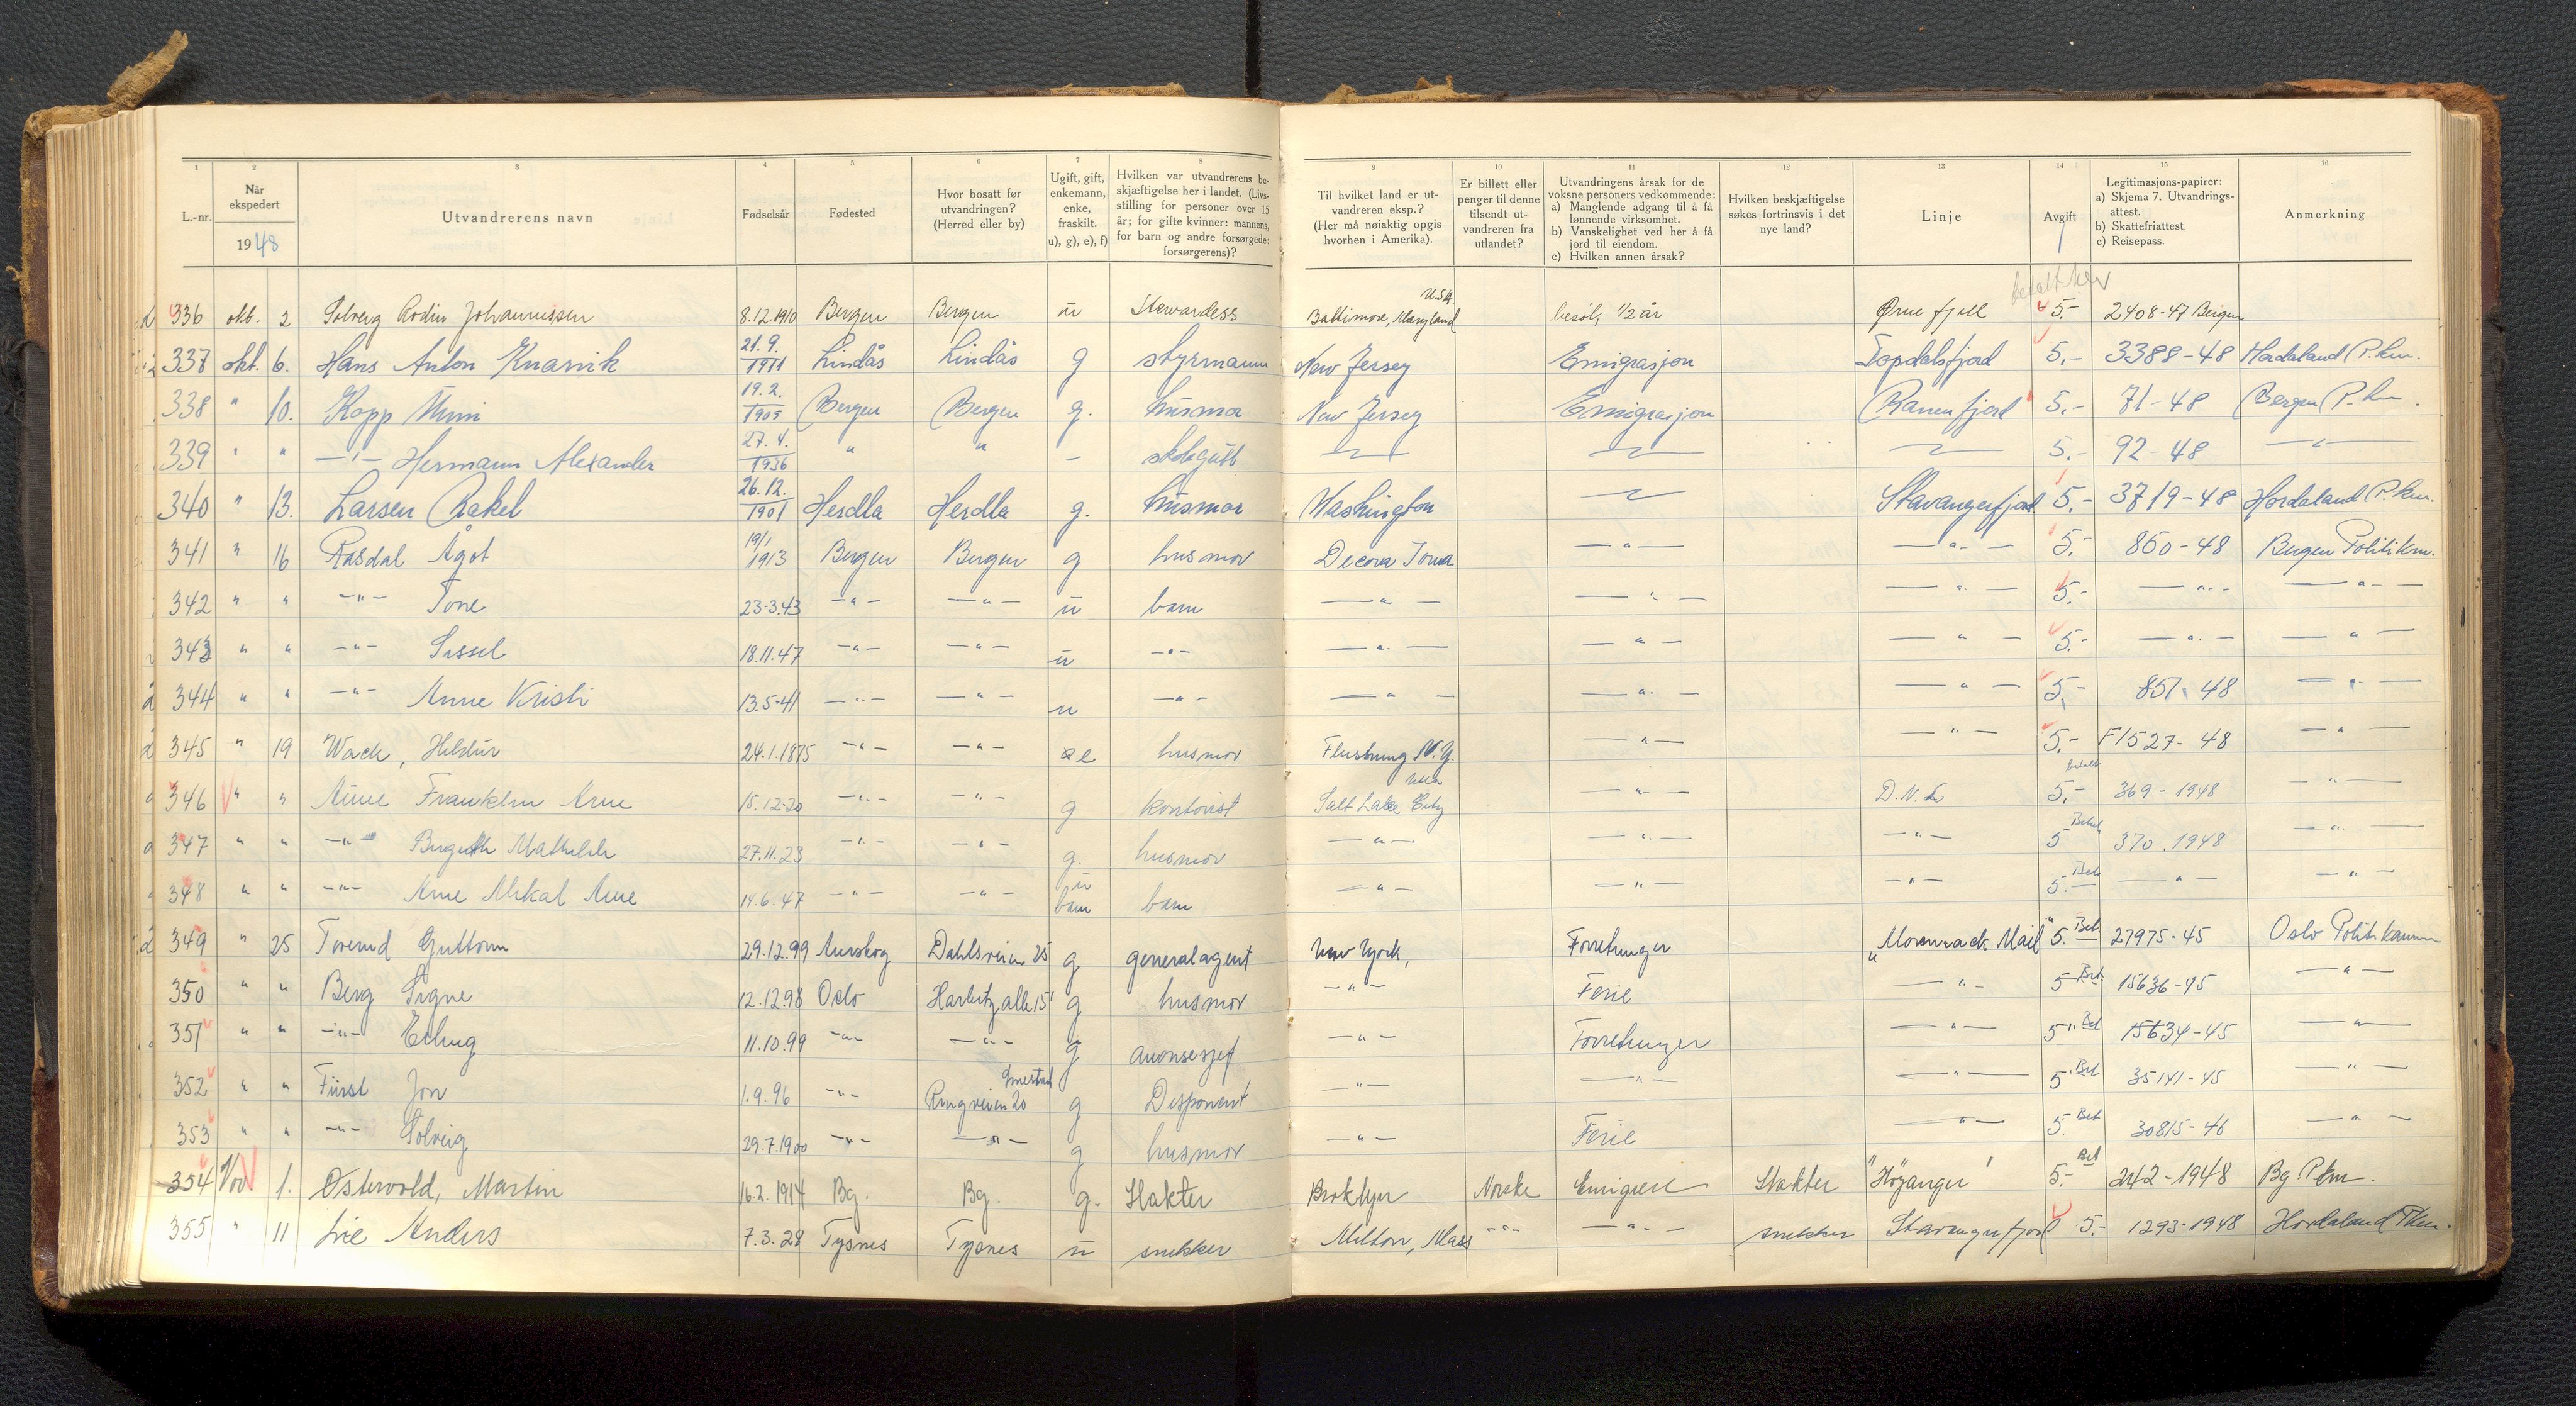 1 2 3 4 5 6 7 8 9 10 11 12 13 14 15 16
L.-nr.
Når ekspedert
1948
Utvandrerens navn
Fødselsår
Fødested
Hvor bosatt før utvandringen? (Herred eller by)
Ugift, gift, enkemann, enke, fraskilt. u), g), e), f)
Hvilken var utvandrerens beskjæftigelse her i landet. (Livsstilling for personer over 15 år; for gifte kvinner: mannens, for barn og andre forsørgede: forsørgerens)?
Til hvilket land er utvandreren eksp.? (Her må nøiaktig opgis hvorhen i Amerika).
Er billett eller penger til denne tilsendt utvandreren fra utlandet?
Utvandringens årsak for de voksne personers vedkommende:
a) Manglende adgang til å få lønnende virksomhet.
b) Vanskelighet ved her å få jord til eiendom.
c) Hvilken annen årsak?
Hvilken beskjæftigelse søkes fortrinsvis i det nye land?
Linje
Avgift
Legitimasjons-papirer:
a) Skjema 7. Utvandringsattest.
b) Skattefriattest.
c) Reisepass.
Anmerkning
336 okt. 2 Solveig Rodin Johannessen 8.12.1910 Bergen Bergen u Stewardess Baltimore, Maryland U.S.A. besøk, 1/2 år Ørnefjell 5.- 2408-47 Bergen
337 okt. 6. Hans Anton Knarvik 21.9.1911 Lindås Lindås g styrmann New Jersey Emigrasjon Topdalsfjord 5.- 3388-48 Hordaland P.km.
338 " 10. Kopp Unni 19.2.1905 Bergen Bergen g. husmor New Jersey Emigrasjon Ranenfjord 5.- 71-48 Bergen P.km.
339 " " —"— Hermann Alexander 27.4.1936 " " - skolegutt 5.- 92-48 —"—
340 " 13. Larsen Rakel 26.12.1901 Herdla Herdla g. husmor Washington Stavangerfjord 5.- 3719-48 Hordaland P.km.
341 " 16 Rosdal Ågot 19/1 1913 Bergen Bergen g husmor Decora Iowa —"— —"— 5.- 850-48 Bergen Politikm.
342 " " —"— Tone 23-3.43 —"— —"— u barn —"— —"— —"— 5.- —"— —"—
343 " " —"— Sissel 18.11.47 —"— —"— u —"— —"— —"— —"— 5.- —"— —"—
344 " " —"— Anne Kristi 13.5-41 —"— —"— u —"— —"— —"— —"— 5.- 851-48 —"—
345 " 19 Wack, Hildur 24.1.1875 —"— —"— e husmor Flushung N.Y. —"— —"— 5.- F1527-48 —"—
346 " " Franklin Arne 15.12-20 —"— —"— g kontorist Salt Lake City —"— 5.- betalt 369-1948 —"—
347 " " —"— Mathilde 27.11.23 —"— —"— g. husmor —"— —"— —"— 5 370.1948 —"—
348 " " —"— Arne Mikal 14.6.47 —"— —"— u barn barn —"— —"— —"— 5.- Bet —"— —"—
349 " 25 Torend Guttorm 29.12.99 Aurskog Dahlsveien 25 g generalagent New York, Forretninger "Moremack Mail" 5.- Bet 27975-45 Oslo Politikammer
350 " " Berg Signe 12.12.98 Oslo Harbitz alle 15 g husmor —"— Ferie —"— 5 Bet 15636-45 —"—
351 " " —"— Erling 11.10.99 —"— —"— g anonsesjef —"— Forretninger —"— 5 Bet 15634-45 —"—
352 " " Fürst Jon 1.9.96 —"— Ringveien 20 Smestad g Disponent —"— —"— —"— 5 Bet 35141-45 —"—
353 " " —"— Solveig 29.7.1900 —"— —"— g husmor —"— Ferie —"— 5. Bet 30815-46 —"—
354 Nov 1. Østervold, Martin 16.2.1914 Bg. Bg. g. Slakter Broklyn Norske Emigrere Slakter "Høyanger" 5.- Bet 242-1948 Bg P.km.
355 " 11 Lie Anders 7.3.28 Tysnes Tysnes u snekker Milton, Mass —"— —"— snekker Stavangerfjord 5.- 1293-1948 Hordaland Pkm.